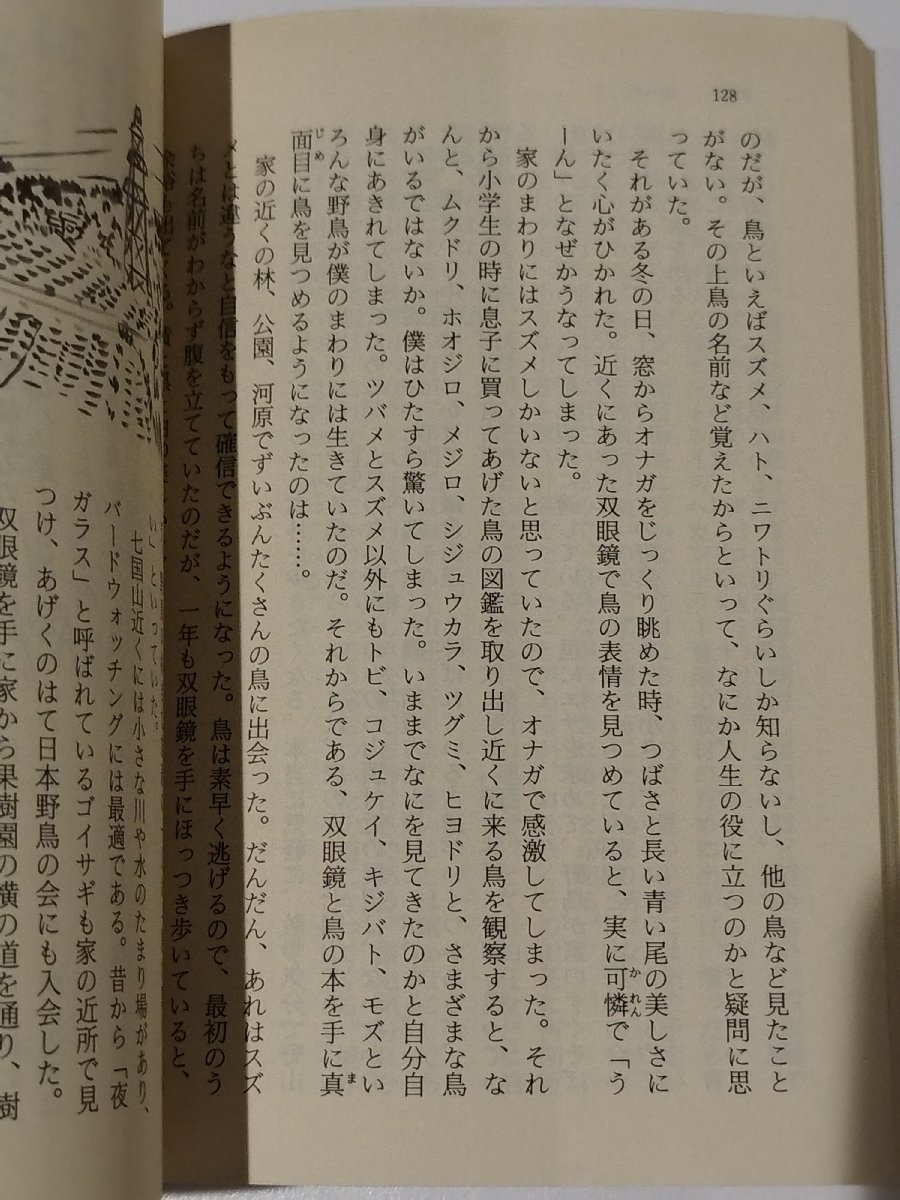 128
のだが、鳥といえばスズメ、ハト、ニワトリぐらいしか知らないし、他の鳥など見たこと
がない。その上鳥の名前など覚えたからといって、なにか人生の役に立つのかと疑問に思
っていた。
それがある冬の日、窓からオナガをじっくり眺めた時、つばさと長い青い尾の美しさに
いたく心がひかれた。近くにあった双眼鏡で鳥の表情を見つめていると、実に可憐で「う
ーん」となぜかうなってしまった。
家のまわりにはスズメしかいないと思っていたので、オナガで感激してしまった。それ
から小学生の時に息子に買ってあげた鳥の図鑑を取り出し近くに来る鳥を観察すると、な
んと、ムクドリ、ホオジロ、メジロ、シジュウカラ、ツグミ、ヒヨドリと、さまざまな鳥
がいるではないか。僕はひたすら驚いてしまった。いままでなにを見てきたのかと自分自
身にあきれてしまった。ツバメとスズメ以外にもトビ、コジュケイ、キジバト、モズとい
ろんな野鳥が僕のまわりには生きていたのだ。それからである、双眼鏡と鳥の本を手に真
面目に鳥を見つめるようになったのは……。
家の近くの林、公園、河原でずいぶんたくさんの鳥に出会った。だんだん、あれはスズ
メとは違うなと自信をもって確信できるようになった。鳥は素早く逃げるので、最初のう
ちは名前がわからず腹を立てていたのだが、一年も双眼鏡を手にほっつき歩いていると、
い」といっていた。
七国山近くには小さな川や水のたまり場があり、
バードウォッチングには最適である。昔から「夜
ガラス」と呼ばれているゴイサギも家の近所で見
つけ、あげくのはて日本野鳥の会にも入会した。
双眼鏡を手に家から果樹園の横の道を通り、樹